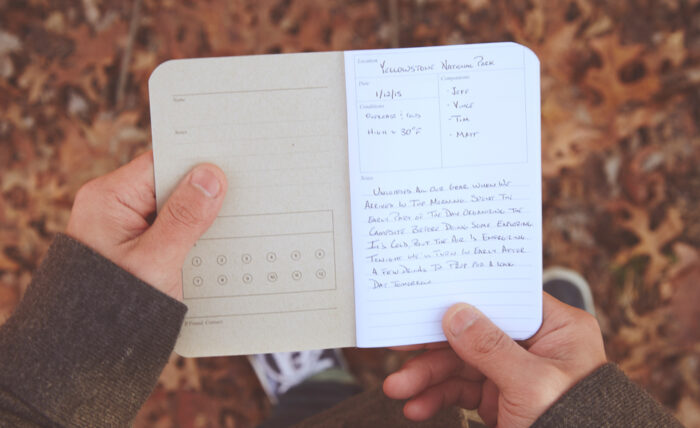 Name
Notes
1 2 3 4 5 6
7 8 9 10 11 12
If Found Contact
Location
Yellowstone National Park
Date
1/12/15
Companions
- Jeff
- Vince
- Tim
- Matt
Conditions
Overcast & Cold
High ≈ 30°F
Notes
Unloaded All Our Gear When We
Arrived In The Morning. Spent The
Early Part of The Day Organizing The
Campsite Before Doing Some Exploring.
It's Cold, But The Air Is Energizing.
Tonight We'll Turn In Early After
A Few Drinks To Prep For A Long
Day Tomorrow.